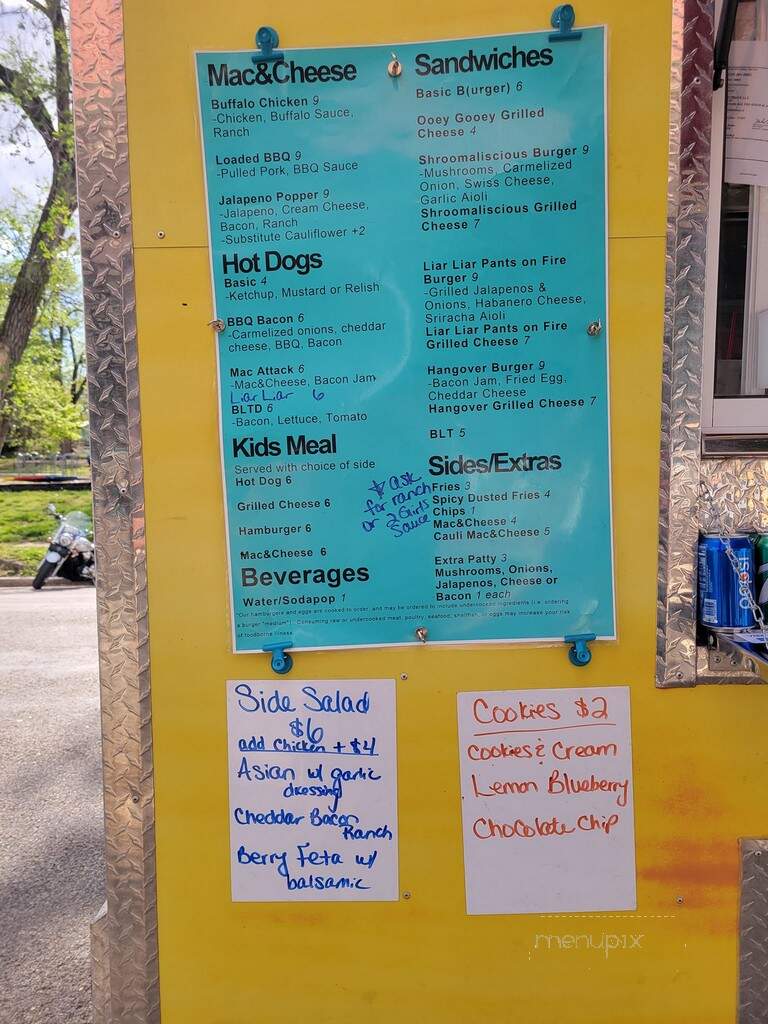 Mac&Cheese
Buffalo Chicken 9
-Chicken, Buffalo Sauce,
Ranch
Loaded BBQ 9
-Pulled Pork, BBQ Sauce
Jalapeno Popper 9
-Jalapeno, Cream Cheese,
Bacon, Ranch
-Substitute Cauliflower +2
Hot Dogs
Basic 4
-Ketchup, Mustard or Relish
BBQ Bacon 6
-Carmelized onions, cheddar
cheese, BBQ, Bacon
Mac Attack 6
-Mac&Cheese, Bacon Jam
Liar Liar 6
BLTD 6
-Bacon, Lettuce, Tomato
Kids Meal
Served with choice of side
Hot Dog 6
Grilled Cheese 6
Hamburger 6
Mac&Cheese 6
Beverages
Water/Sodapop 1
Sandwiches
Basic B(urger) 6
Ooey Gooey Grilled
Cheese 4
Shroomaliscious Burger 9
-Mushrooms, Carmelized
Onion, Swiss Cheese,
Garlic Aioli
Shroomaliscious Grilled
Cheese 7
Liar Liar Pants on Fire
Burger 9
-Grilled Jalapenos &
Onions, Habanero Cheese,
Sriracha Aioli
Liar Liar Pants on Fire
Grilled Cheese 7
Hangover Burger 9
-Bacon Jam, Fried Egg,
Cheddar Cheese
Hangover Grilled Cheese 7
BLT 5
Sides/Extras
Fries 3
Spicy Dusted Fries 4
Chips 1
Mac&Cheese 4
Cauli Mac&Cheese 5
Extra Patty 3
Mushrooms, Onions,
Jalapenos, Cheese or
Bacon 1 each
ask
for ranch
or 2 Girls
Sauce
*Our hamburgers and eggs are cooked to order, and may be ordered to include undercooked ingredients (i.e. ordering
a burger "medium"). Consuming raw or undercooked meat, poultry, seafood, shellfish, or eggs may increase your risk
of foodborne illness.
Side Salad
$6
add chicken + $4
Asian w/ garlic
dressing
Cheddar Bacon
Ranch
Berry Feta w/
balsamic
Cookies $2
Cookies & Cream
Lemon Blueberry
Chocolate Chip
menupix